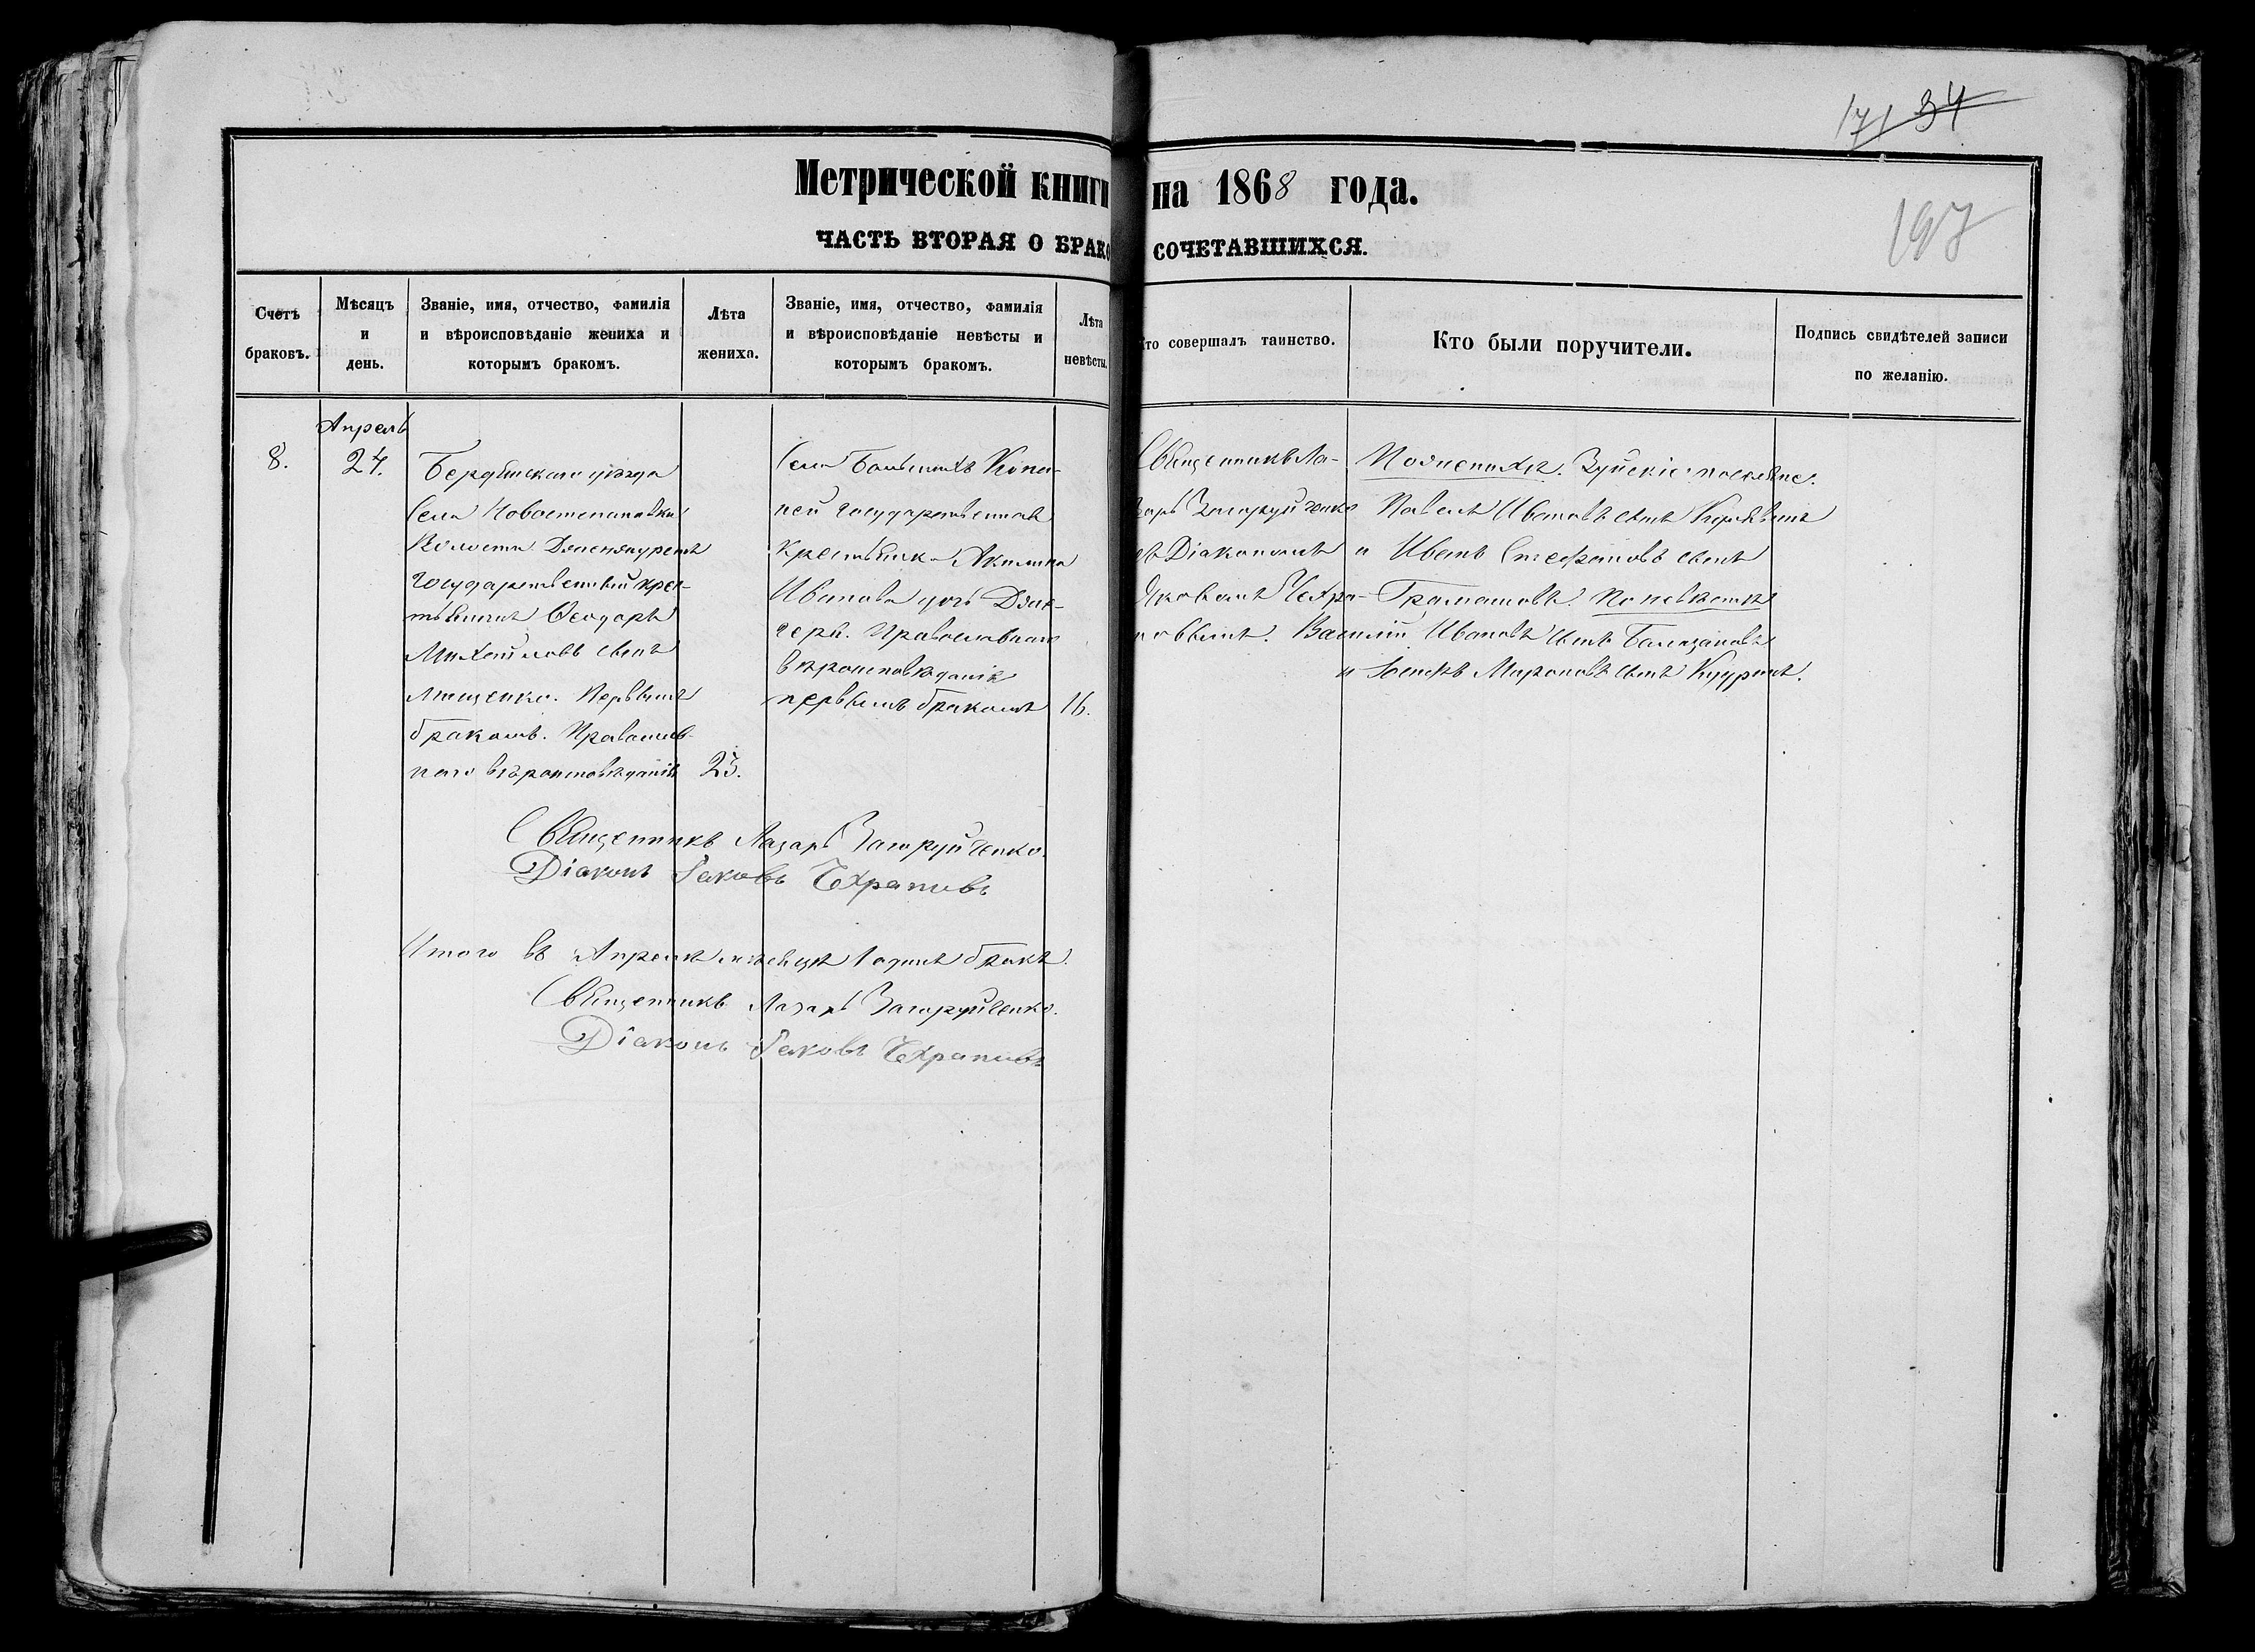 171 34
Метрической книги на 1868 года.
197
ЧАСТЬ ВТОРАЯ О БРАКО СОЧЕТАВШИХСЯ.
Счетъ браковъ.
Мѣсяцъ и день.
Званіе, имя, отчество, фамилія и вѣроисповѣданіе жениха и которымъ бракомъ.
Лѣта жениха.
Званіе, имя, отчество, фамилія и вѣроисповѣданіе невѣсты и которымъ бракомъ.
Лѣта невѣсты.
Кто совершалъ таинство.
Кто были поручители.
Подпись свидѣтелей записи по желанію.
8.
Апрель
24.
Бердянскаго уѣзда
Села Новостепановки
Волости
Государственный крес-
тьянинъ Феодоръ
Михайловъ сынъ
Первымъ
бракомъ. Православ-
наго вѣроисповѣданія
25.
Села Большихъ Копа-
ней Государственная
крестьянка Акилина
Иванова дочь Дзюб-
Православнаго
вѣроисповѣданія
первымъ бракомъ
16.
Священникъ Ла-
зарь Загоруйченко
съ Діакономъ
Яковомъ Чехра-
новымъ.
По женихѣ: Зуйскіе поселяне:
Павелъ Ивановъ сынъ
и Иванъ Стефановъ сынъ
Граматовъ. По невѣстѣ
Василій Ивановъ сынъ
и Іосифъ Мироновъ сынъ
Священникъ Лазарь Загоруйченко.
Діаконъ Іаковъ Чехрановъ
Итого въ Апрелѣ мѣсяцѣ 1 одинъ бракъ.
Священникъ Лазарь Загоруйченко.
Діаконъ Іаковъ Чехрановъ